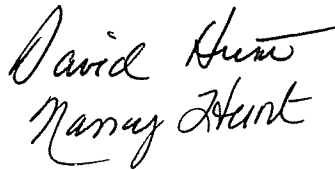 David Hunt
Nancy Hunt